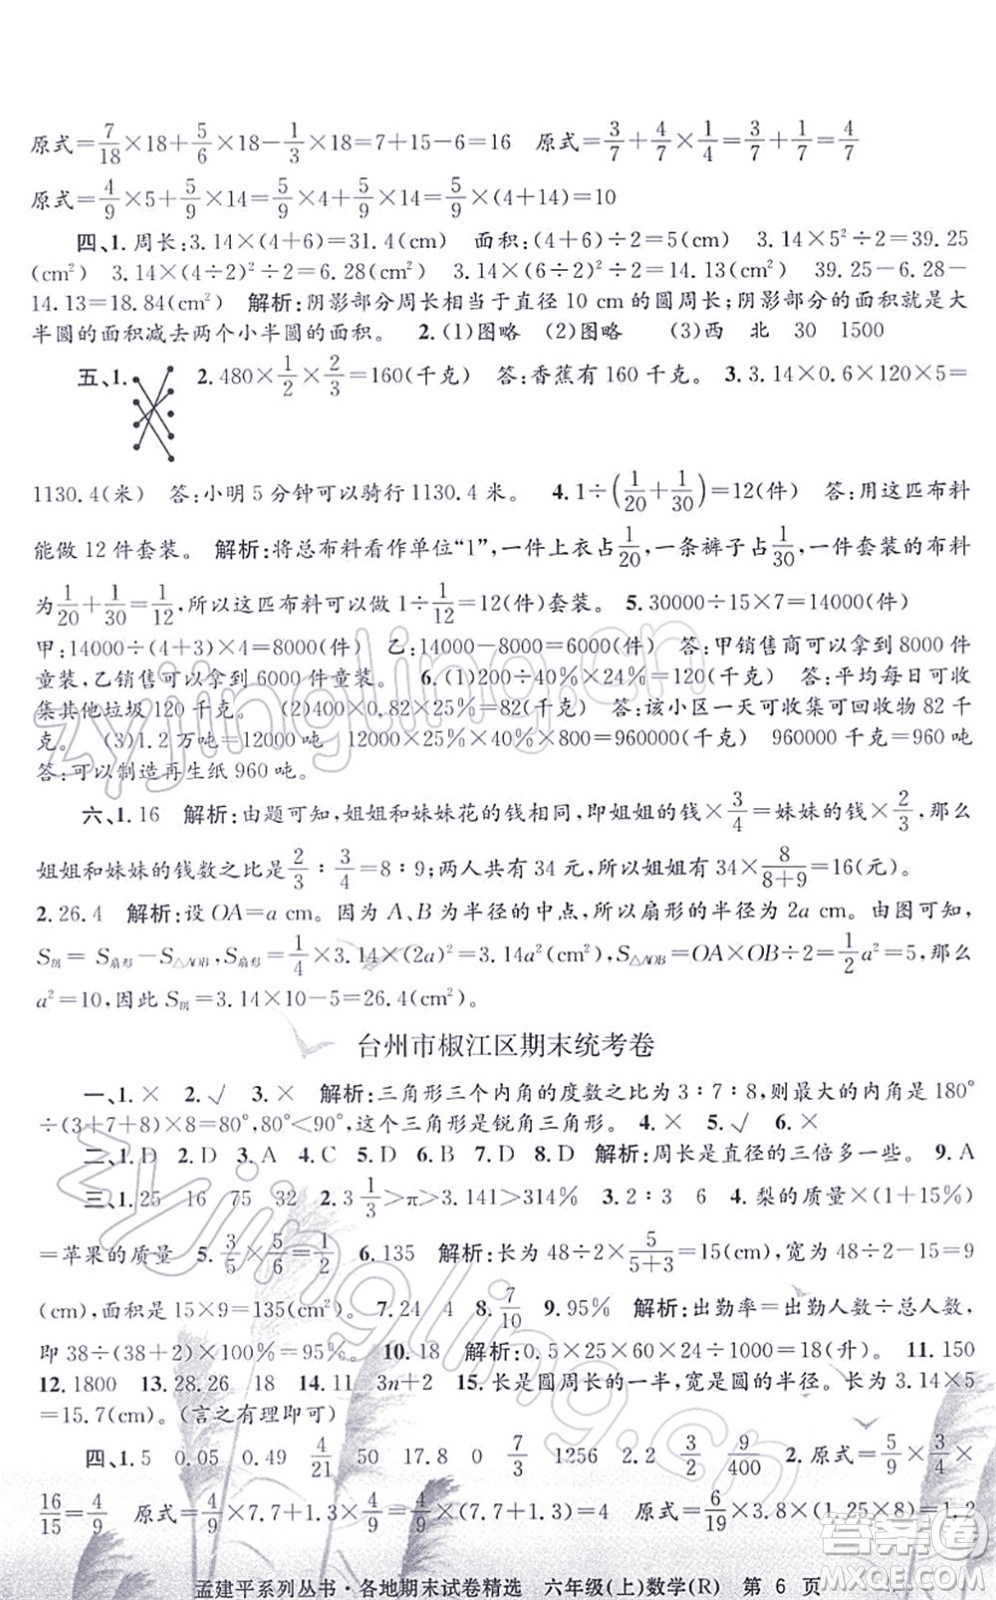 原式=7/18×18+5/6×18-1/3×18=7+15-6=16 原式=3/7+4/7×1/4=3/7+1/7=4/7
原式=4/9×5+5/9×14=5/9×4+5/9×14=5/9×(4+14)=10
四、1.周长:3.14×(4+6)=31.4(cm) 面积:(4+6)÷2=5(cm) 3.14×5²÷2=39.25
(cm²) 3.14×(4÷2)²÷2=6.28(cm²) 3.14×(6÷2)²÷2=14.13(cm²) 39.25-6.28-
14.13=18.84(cm²) 解析:阴影部分周长相当于直径 10 cm 的圆周长;阴影部分的面积就是大
半圆的面积减去两个小半圆的面积。 2.(1)图略 (2)图略 (3)西 北 30 1500
五、1. 2.480×1/2×2/3=160(千克) 答:香蕉有 160 千克。 3.3.14×0.6×120×5=
1130.4(米) 答:小明 5 分钟可以骑行 1130.4 米。 4.1÷(1/20+1/30)=12(件) 答:用这匹布料
能做 12 件套装。 解析:将总布料看作单位“1”,一件上衣占1/20,一条裤子占1/30,一件套装的布料
为1/20+1/30=1/12,所以这匹布料可以做 1÷1/12=12(件)套装。 5.30000÷15×7=14000(件)
甲:14000÷(4+3)×4=8000(件) 乙:14000-8000=6000(件) 答:甲销售商可以拿到 8000 件
童装,乙销售可以拿到 6000 件童装。 6.(1)200÷40%×24%=120(千克) 答:平均每日可收
集其他垃圾 120 千克。 (2)400×0.82×25%=82(千克) 答:该小区一天可收集可回收物 82 千
克。 (3)1.2 万吨=12000 吨 12000×25%×40%×800=960000(千克) 960000 千克=960 吨
答:可以制造再生纸 960 吨。
六、1.16 解析:由题可知,姐姐和妹妹花的钱相同,即姐姐的钱×3/4=妹妹的钱×2/3,那么
姐姐和妹妹的钱数之比是2/3∶3/4=8∶9;两人共有 34 元,所以姐姐有 34×8/(8+9)=16(元)。
2.26.4 解析:设 OA=a cm。因为 A、B 为半径的中点,所以扇形的半径为 2a cm。由图可知,
S阴=S扇形-S△AOB,S扇形=1/4×3.14×(2a)²=3.14a²(cm²),S△AOB=OA×OB÷2=1/2a²=5,那么
a²=10,因此 S阴=3.14×10-5=26.4(cm²)。
台州市椒江区期末统考卷
一、1.× 2.√ 3.× 解析:三角形三个内角的度数之比为 3∶7∶8,则最大的内角是 180°
÷(3+7+8)×8=80°,80°<90°,这个三角形是锐角三角形。 4.× 5.√ 6.×
二、1.D 2.D 3.A 4.C 5.D 6.B 7.D 8.D 解析:周长是直径的三倍多一些。 9.A
三、1.25 16 75 32 2.3 1/3>π>3.141>314% 3.2∶3 6 4.梨的质量×(1+15%)
=苹果的质量 5.3/5×5/6=1/2 6.135 解析:长为 48÷2×5/(5+3)=15(cm),宽为 48÷2-15=9
(cm),面积是 15×9=135(cm²)。 7.24 4 8.7/10 9.95% 解析:出勤率=出勤人数÷总人数,
即 38÷(38+2)×100%=95%。 10.18 解析:0.5×25×60×24÷1000=18(升)。 11.150
12.1800 13.28.26 18 14.11 3n+2 15.长是圆周长的一半,宽是圆的半径。 3.14×5
=15.7(cm)。(言之有理即可)
四、1.5 0.05 0.49 4/21 50 17.8 0 7/3 1256 2.2 3/2 9/400 2.原式=5/9×3/4×
16/15=4/9 原式=4/9×7.7+1.3×4/9=4/9×(7.7+1.3)=4 原式=6/19×3.8×(1.25×8)=1.2
孟建平系列丛书·各地期末试卷精选 六年级(上)数学(R) 第 6 页
zyjingling.cn
zyjingling.cn
答案圈